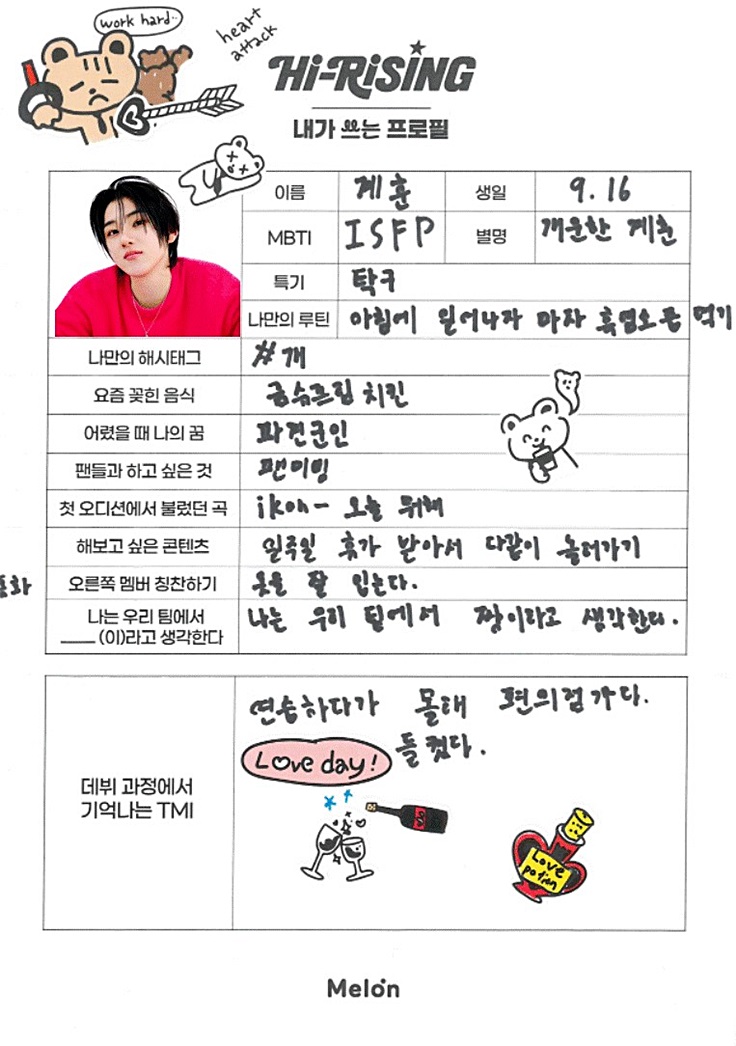 work hard..
heart
attack
Hi-RiSiNG
내가 쓰는 프로필
이름 계훈 생일 9.16
MBTI ISFP 별명 개운한 계훈
특기 탁구
나만의 루틴 아침에 일어나자 마자 흑염소즙 먹기
나만의 해시태그 #개
요즘 꽂힌 음식 굽슈프림 치킨
어렸을 때 나의 꿈 파견군인
팬들과 하고 싶은 것 팬미팅
첫 오디션에서 불렀던 곡 ikon - 오늘 뭐해
해보고 싶은 콘텐츠 일주일 휴가 받아서 다같이 놀러가기
오른쪽 멤버 칭찬하기 옷을 잘 입는다.
나는 우리 팀에서 나는 우리 팀에서 짱이라고 생각한다.
____ (이)라고 생각한다
데뷔 과정에서
기억나는 TMI
연습하다가 몰래 편의점가다.
들켰다.
Love day!
Love
potion
Melon